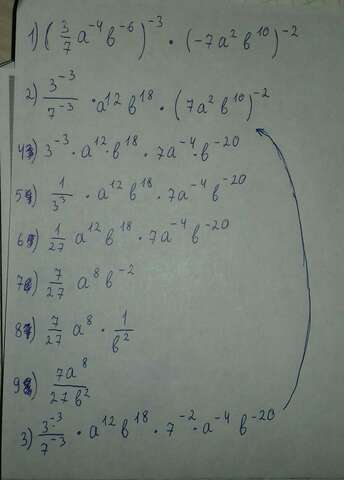 1) (3/7 a⁻⁴ в⁻⁶)⁻³ · (-7a² в¹⁰)⁻²
2) 3⁻³/7⁻³ · a¹² в¹⁸ · (7a² в¹⁰)⁻²
4) 3⁻³ · a¹² · в¹⁸ · 7a⁻⁴ · в⁻²⁰
5) 1/3³ · a¹² в¹⁸ · 7a⁻⁴ в⁻²⁰
6) 1/27 a¹² в¹⁸ · 7a⁻⁴ в⁻²⁰
7) 7/27 a⁸ в⁻²
8) 7/27 a⁸ · 1/в²
9) 7a⁸/27в²
3) 3⁻³/7⁻³ · a¹² в¹⁸ · 7⁻² · a⁻⁴ в⁻²⁰